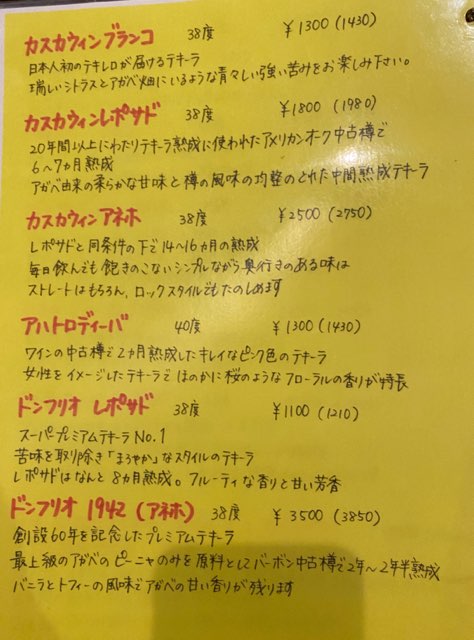 カスカウィンブランコ 38度 ¥1300(1430)
日本人初のテキレロが届けるテキーラ
瑞しいシトラスとアガベ畑にいるような青々しい強い苦みをお楽しみ下さい。
カスカウィンレポサド 38度 ¥1800(1980)
20年間以上にわたりテキーラ熟成に使われたアメリカンオーク中古樽で
6〜7ヵ月熟成
アガベ由来の柔らかな甘味と樽の風味の均整のとれた中間熟成テキーラ
カスカウィンアネホ 38度 ¥2500(2750)
レポサドと同条件の下で14〜16ヵ月の熟成
毎日飲んでも飽きのこないシンプルながら奥行きのある味は
ストレートはもちろん、ロックスタイルでもたのしめます
アハトロディーバ 40度 ¥1300(1430)
ワインの中古樽で2ヵ月熟成したキレイなピンク色のテキーラ
女性をイメージしたテキーラでほのかに桜のようなフローラルの香りが特長
ドンフリオ レポサド 38度 ¥1100(1210)
スーパープレミアムテキーラNo.1
苦味を取り除き「まろやか」なスタイルのテキーラ
レポサドはなんと8ヵ月熟成。フルーティな香りと甘い芳香
ドンフリオ 1942(アネホ) 38度 ¥3500(3850)
創設60年を記念したプレミアムテキーラ
最上級のアガベのピーニャのみを原料としてバーボン中古樽で2年〜2年半熟成
バニラとトフィーの風味でアガベの甘い香りが残ります